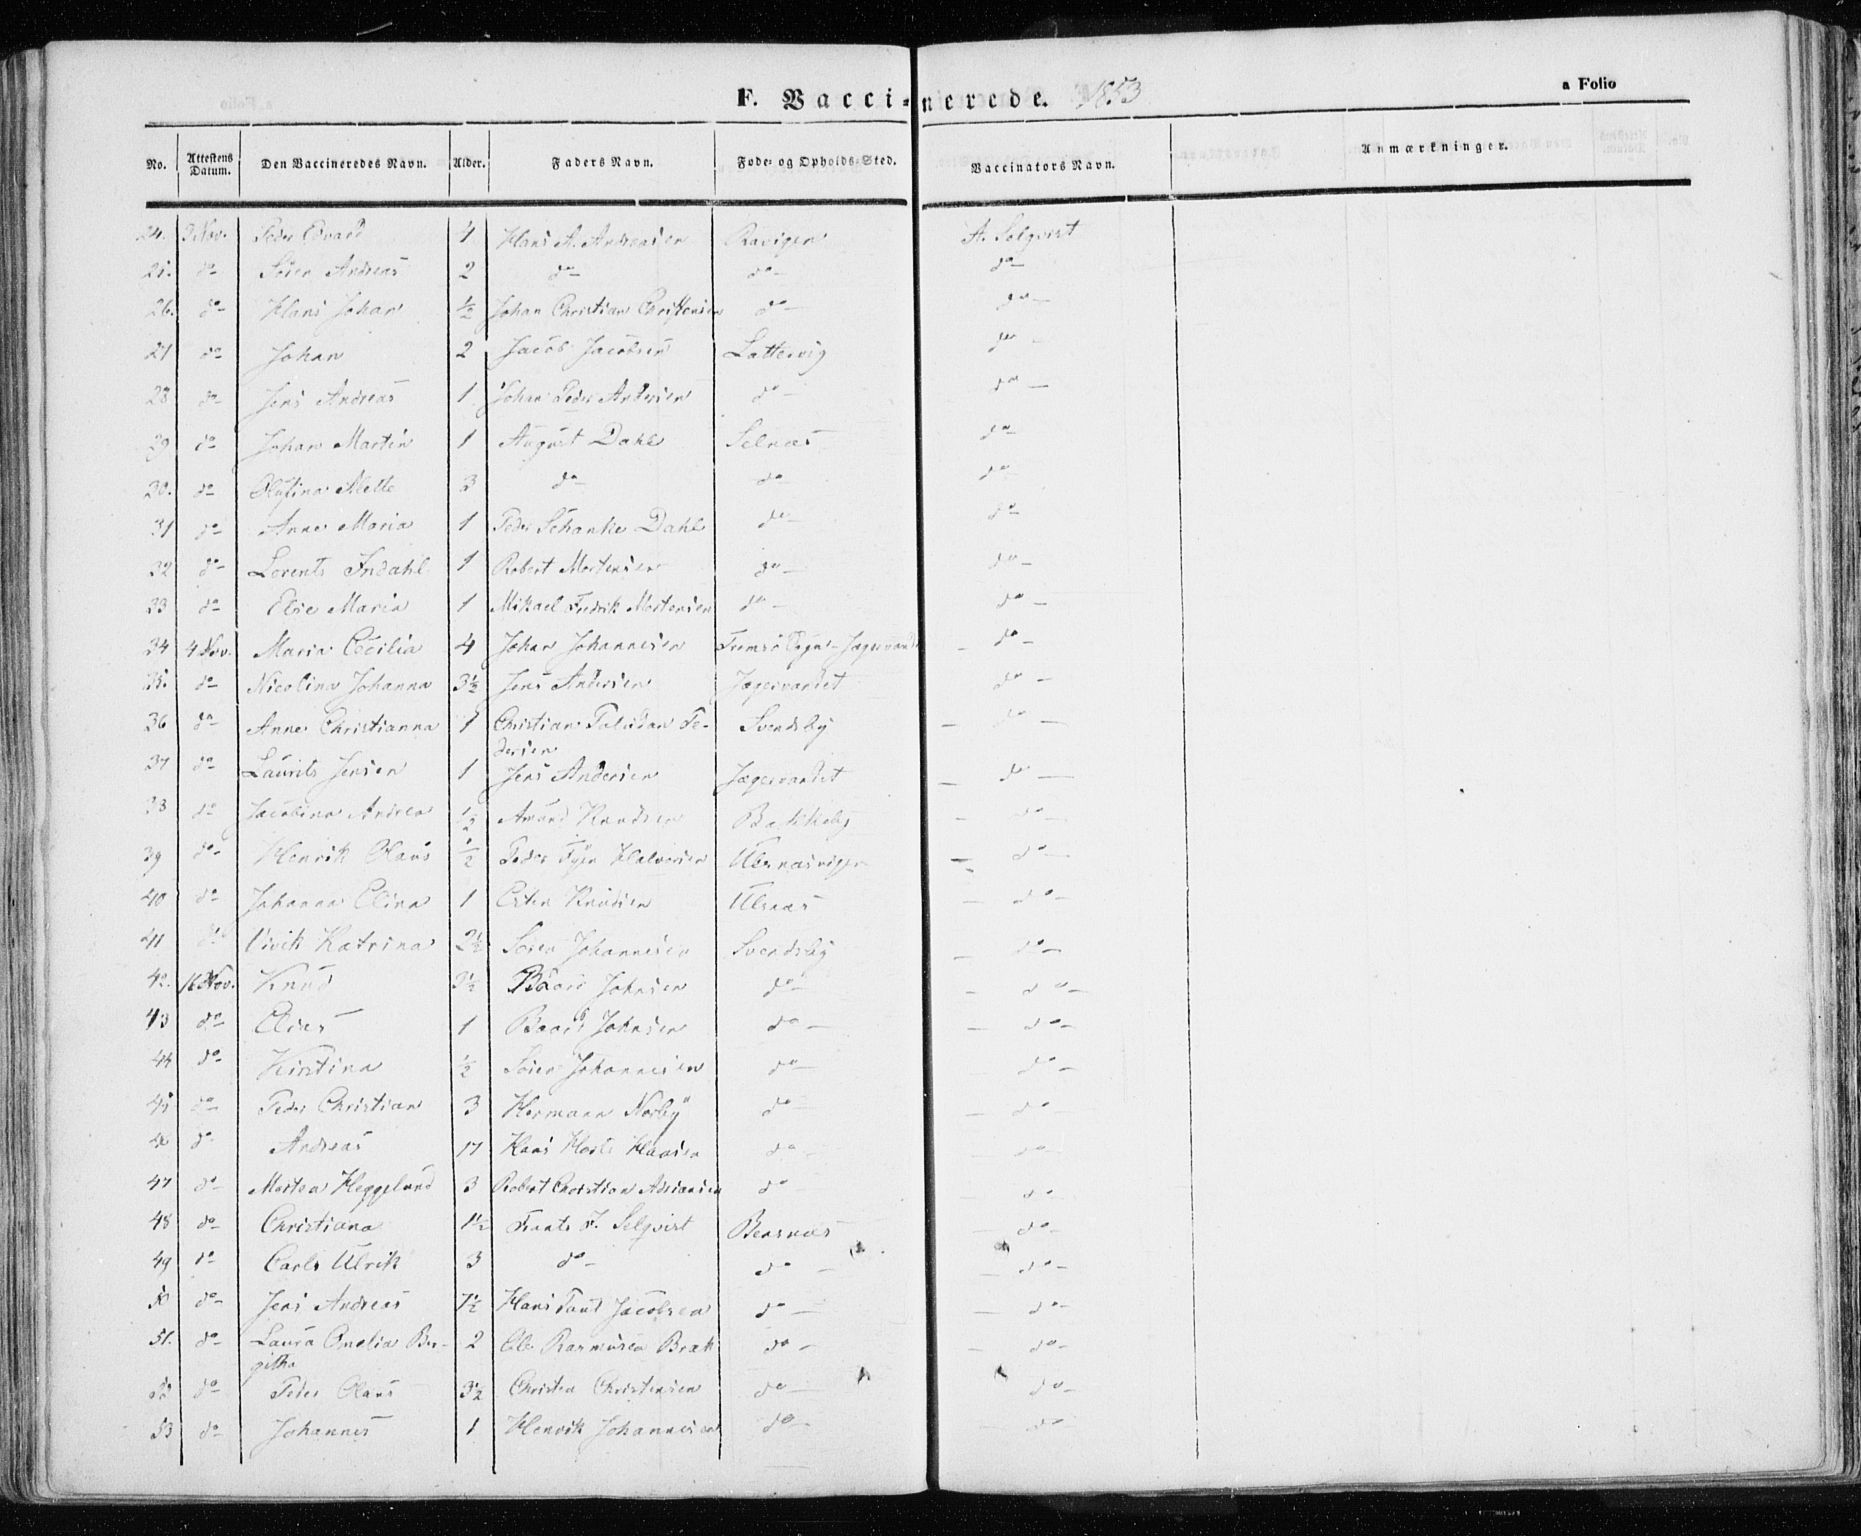 F. Vaccinerede. 1853
a Folio
No. Attestens Datum. Den Vaccineredes Navn. Alder. Faders Navn. Føde- og Opholds-Sted. Vaccinators Navn. Anmærkninger.
24. 3 Nov. Peder Edvard 4 Hans A. Andreasen Ravigen A. Selqvist
25. do Sören Andreas 2 do do do
26. do Hans Johan ½ Johan Christian Christensen do do
27 do Johan 2 Jacob Jacobsen Lattervig do
28 do Jens Andreas 1 Johan Peder Andersen do do
29 do Johan Martin 1 August Dahl Selnæs do
30. do Olufina Mette 3 do do do
31 do Anne Maria 1 Peder Schanke Dahl do do
32 do Lorents Indahl 1 Robert Mortensen do do
33 do Else Maria 1 Mikael Fredrik Mortensen do do
34 4 Nov. Maria Cecilia 4 Johan Johannesen Tromsö Sogn Jægervandet do
35. do Nicolina Johanna 3½ Jens Andersen Jægervandet do
36 do Anne Christianna 1 Christian Paludan Pe- Svendsby do
dersen
37 do Laurits Jensen 1 Jens Andersen Jægervandet do
38 do Jacobina Andrea ½ Amund Knudsen do
39 do Henrik Olaus ½ Peder Halvorsen Ulsnæsvigen do
40 do Johanna Elina 1 Esten Knudsen Ulsnæs do
41 do Vivik Katrina 2½ Sören Johannesen Svendsby do
42. 16 Nov. Knud 3½ Baard Johnsen do do
43 do Elias 1 Baard Johnsen do do
44 do Kirstina ½ Sören Johannesen do do
45 do Peder Christian 3 Hermann Norbÿ do do
46 do Andreas 17 Hans Hansen do do
47 do Morten Heggelund 3 Robert Christian Adriansen do do
48 do Christiana 1½ Frants F. Selqvist Beasnæs do
49 do Carl Ulrik 3 do do do
50 do Jens Andreas 7½ Hans Jacobsen do do
51. do Laura Amelia Ber- 2 Ole Rasmusen Bræk do do
githa
52 do Peder Olaus 3½ Christen Christensen do do
53 do Johannes 1 Henrik Johannesen do do